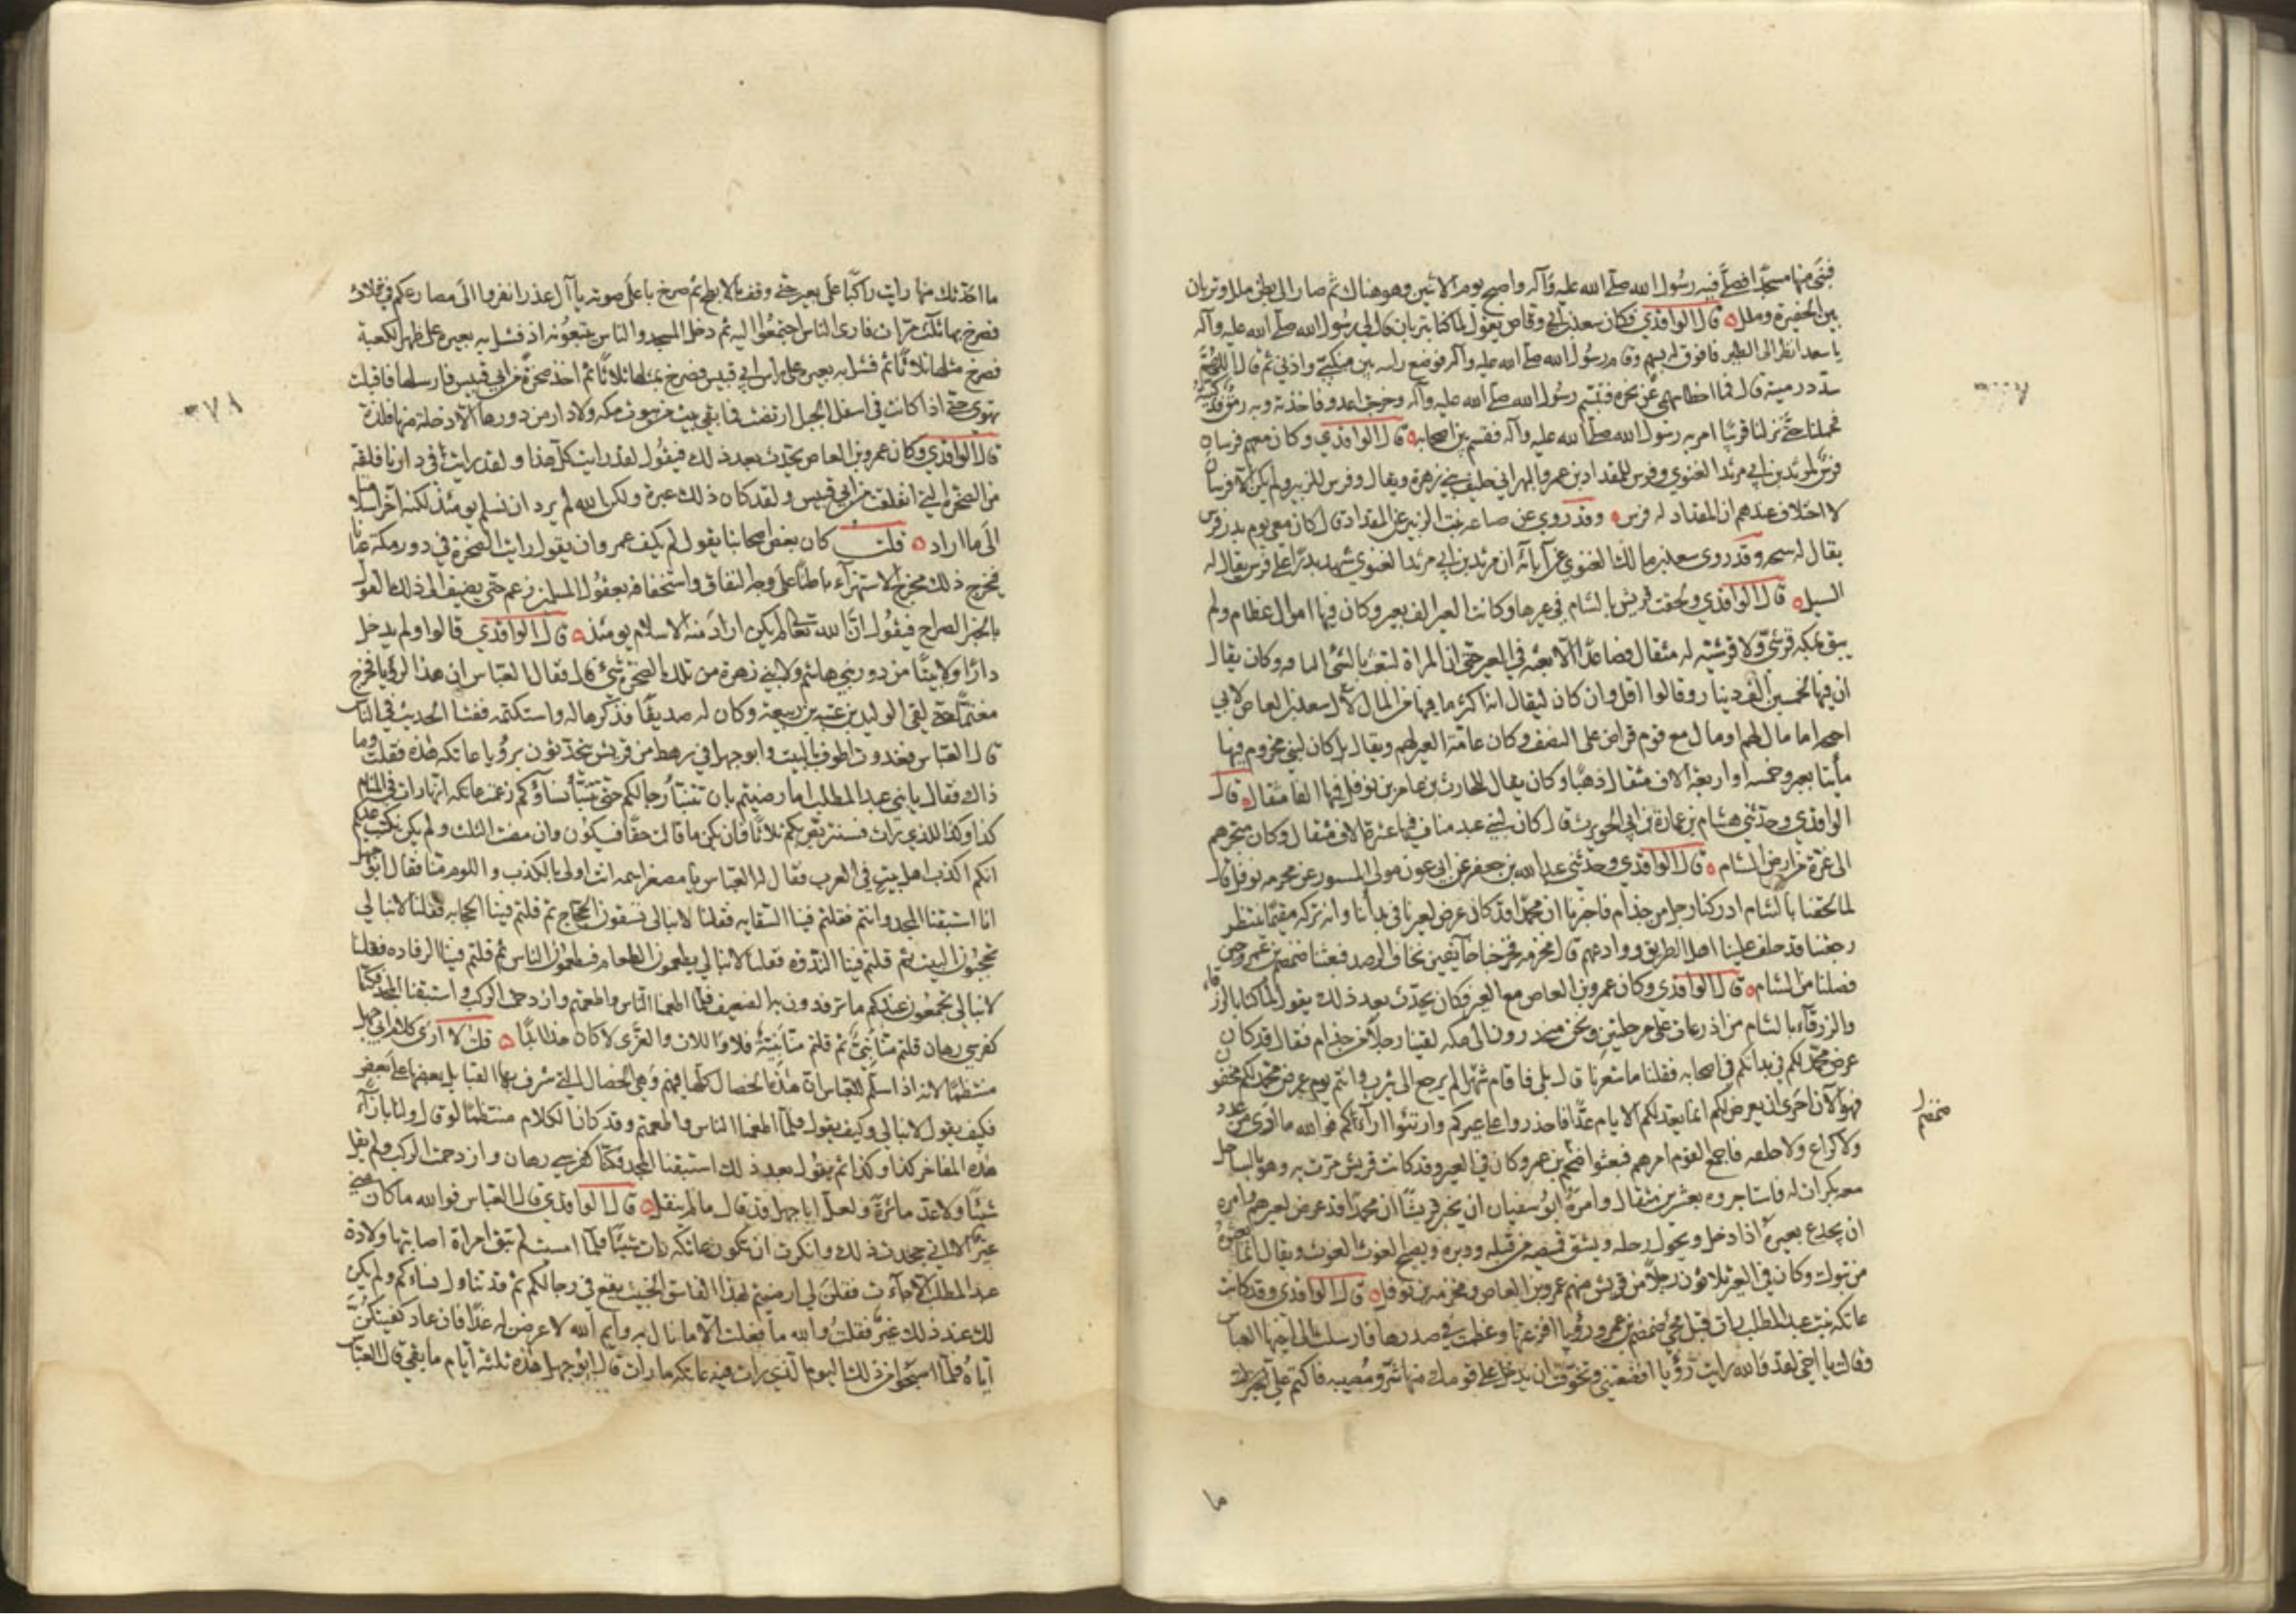 فبنى منها مسجدا فصلى فيه رسول الله صلى الله عليه وآله واصبح يوم الاثنين وهو هناك ثم صار الى بطن ملل وتربان
بين الحفيرة وملل قال الواقدي فكان سعد بن ابي وقاص يقول لما كنا بتربان قال لي رسول الله صلى الله عليه وآله
يا سعد انظر الى الظبي فافوق له بسهم وقام رسول الله صلى الله عليه وآله فوضع راسه بين منكبي واذني ثم قال اللهم
سدد رميته قال فما اخطا سهمي عن نحره فتبسم رسول الله صلى الله عليه وآله وخرجت اعدو فاخذته وبه رمق فذكيته
فحملناه حتى نزلنا قريبا امر به رسول الله صلى الله عليه وآله فقسم بين اصحابه قال الواقدي وكان معهم فرسان
فرس لمرثد بن ابي مرثد الغنوي وفرس للمقداد بن عمرو البهراني حليف بني زهرة ويقال وفرس للزبير ولم يكن الا فرسان
لا اختلاف عندهم ان المقداد له فرس وقد روي عن ضباعة بنت الزبير عن المقداد قال كان معي يوم بدر فرس
يقال له سبحه وقد روى سعد بن مالك الغنوي عن آبائه ان مرثد بن ابي مرثد الغنوي شهد بدرا على فرس يقال له
السيل قال الواقدي ولحقت قريش بالشام في عيرها وكانت العير الف بعير وكان فيها اموال عظام ولم
يبق بمكه قرشي ولا قرشيه له مثقال فصاعدا الا بعث به في العير حتى ان المراة لتبعث بالشئ التافه وكان يقال
ان فيها لخمسين الف دينار وقالوا اقل وان كان ليقال انه اكثر ما فيها من المال لآل سعيد بن العاص لابي
احيحه اما مال لهم او مال مع قوم قراض على النصف وكان عامة العير لهم ويقال بل كان لبني مخزوم فيها
مأيتا بعير وخمسه او اربعة الاف مثقال ذهبا وكان يقال للحارث بن عامر بن نوفل فيها الفا مثقال قال
الواقدي وحدثني هشام بن عمارة بن ابي الحويرث قال كان لبني عبد مناف فيها عشرة الاف مثقال وكان متجرهم
الى غزة من ارض الشام قال الواقدي وحدثني عبد الله بن جعفر عن ابي عون مولى المسور عن مخرمه بن نوفل قال
لما لحقنا بالشام ادركنا رجل من جذام فاخبرنا ان محمدا قد كان عرض لعيرنا في بدأتنا وانه تركه مقيما ينتظر
رجعتنا قد حالف علينا اهل الطريق ووادعهم قال مخرمه فخرجنا خائفين نخاف الرصد فبعثنا ضمضم بن عمرو حين
فصلنا من الشام قال الواقدي وكان عمرو بن العاص مع العير فكان يحدث بعد ذلك يقول لما كنا بالزرقاء
والزرقآء بالشام من اذرعات على مرحلتين ونحن منحدرون الى مكه لقينا رجلا من جذام فقال قد كان
عرض محمد لكم في بدأتكم في اصحابه فقلنا ما شعرنا قال بلى فاقام شهرا ثم رجع الى يثرب وانتم يوم عرض محمد لكم مخفون
فهو الآن احرى ان يعرض لكم انما يعد لكم الايام عدا فاحذروا على عيركم وارتئوا آراءكم فوالله ما ارى من عدد
ولا كراع ولا حلقه فاجمع القوم امرهم فبعثوا ضمضم بن عمرو وكان في العير وقد كانت قريش مرت به وهو بالساحل
ضمضم
معه بكران له فاستاجروه بعشرين مثقال وامره ابو سفيان ان يخبر قريشا ان محمدا قد عرض لعيرهم وامره
ان يجدع بعيره اذا دخل ويحول رحله ويشق قميصه من قبله ودبره ويصيح الغوث الغوث ويقال انما بعثوه
من تبوك وكان في العير ثلاثون رجلا من قريش منهم عمرو بن العاص ومخرمه بن نوفل قال الواقدي وقد كانت
عاتكه بنت عبد المطلب رات قبل مجئ ضمضم بن عمرو رؤيا افزعتها وعظمت في صدرها فارسلت الى اخيها العباس
وقالت يا اخي لقد والله رايت رؤيا افظعتني وتخوفت ان يدخل على قومك منها شر ومصيبه فاكتم علي
ما
ما احدثك منها رايت راكبا على بعير حتى وقف بالابطح ثم صرخ باعلى صوته يا آل غدر انفروا الى مصارعكم في ثلاث
فصرخ بها ثلث مرات فارى الناس اجتمعوا اليه ثم دخل المسجد والناس يتبعونه اذ مثل به بعيره على ظهر الكعبة
فصرخ مثلها ثلاثا ثم مثل به بعيره على راس ابي قبيس فصرخ بمثلها ثلاثا ثم اخذ صخرة من ابي قبيس فارسلها فاقبلت
٣٧٨
تهوي حتى اذا كانت في اسفل الجبل ارفضت فما بقي بيت من بيوت مكه ولا دار من دورها الا دخلته منها فلذة
قال الواقدي وكان عمرو بن العاص يحدث بعد ذلك فيقول لقد رايت كل هذا ولقد رايت في دارنا فلقة
من الصخرة التي انفلقت من ابي قبيس ولقد كان ذلك عبرة ولكن الله لم يرد ان نسلم يومئذ لكنه اخر اسلامنا
الى ما اراد قلت كان بعض اصحابنا يقول لم يكف عمرو ان يقول رايت الصخرة في دور مكة عيانا
فيخرج ذلك مخرج الاستهزآء باطنا على وجه النفاق واستخفافه بعقول المسلمين زعم حتى يضيف الى ذلك القول
بالخبر الصراح فيقول ان الله تعالى لم يكن اراد منه الاسلام يومئذ قال الواقدي قالوا ولم يدخل
دارا ولا بيتا من دور بني هاشم ولا بني زهرة من تلك الصخرة شئ قال فقال العباس ان هذه لرؤيا فخرج
مغتما حتى لقي الوليد بن عتبه بن ربيعه وكان له صديقا فذكرها له واستكتمه ففشا الحديث في الناس
قال العباس فغدوت اطوف بالبيت وابو جهل في رهط من قريش يتحدثون برؤيا عاتكه هذه فقلت وما
ذاك فقال يا بني عبد المطلب اما رضيتم بان تتنبأ رجالكم حتى تتنبأ نساؤكم زعمت عاتكه انها رات في المنام
كذا وكذا للذي رات فسنتربص بكم ثلاثا فان يكن ما قالت حقا فسيكون وان مضت الثلث ولم يكن نكتب عليكم
انكم اكذب اهل بيت في العرب فقال له العباس يا مصفر استه انت اولى بالكذب واللوم منا فقال ابو جهل
انا استبقنا المجد وانتم فقلتم فينا السقايه فقلنا لا نبالي تسقون الحجاج ثم قلتم فينا الحجابه فقلنا لا نبالي
تحجبون البيت ثم قلتم فينا الندوه فقلنا لا نبالي يطعمون الطعام فيطعمون الناس ثم قلتم فينا الرفاده فقلنا
لا نبالي تجمعون عندكم ما ترفدون به الضعيف فلما اطعمنا الناس واطعمتم وازدحمت الركب واستبقنا المجد فكنا
كفرسي رهان قلتم منا نبي ثم قلتم منا نبيه فلا واللات والعزى لا كان هذا ابدا قلت لا ارى كلام ابي جهل
منتظما لانه اذا سلم للعباس ان هذه الخصال كلها فيهم وهي الخصال التي تشرف بها القبايل بعضها على بعض
فكيف يقول لا نبالي وكيف يقول فلما اطعمنا الناس واطعمتم وقد كان الكلام منتظما لو قال ولنا بازآء
هذه المفاخر كذا وكذا ثم يقول بعد ذلك استبقنا المجد فكنا كفرسي رهان وازدحمت الركب ولم يقل
شيئا ولا عد مأثرة ولعل ابا جهل قد قال ما لم ينقل قال الواقدي قال العباس فوالله ما كان مني
غير اني جحدت ذلك وانكرت ان تكون عاتكه رات شيئا فلما امسيت لم تبق امراة اصابتها ولادة
عبد المطلب الا جآءت فقلن لي ارضيتم لهذا الفاسق الخبيث يقع في رجالكم ثم قد تناول نساءكم ولم يكن
لك عند ذلك غير فقلت والله ما فعلت الا ما نال به وايم الله لاعرضن له غدا فان عاد كفيتكن
اياه فلما اصبحوا من ذلك اليوم الذي رات فيه عاتكه ما رات قال ابو جهل هذه ثلثه ايام ما بقي قال العباس